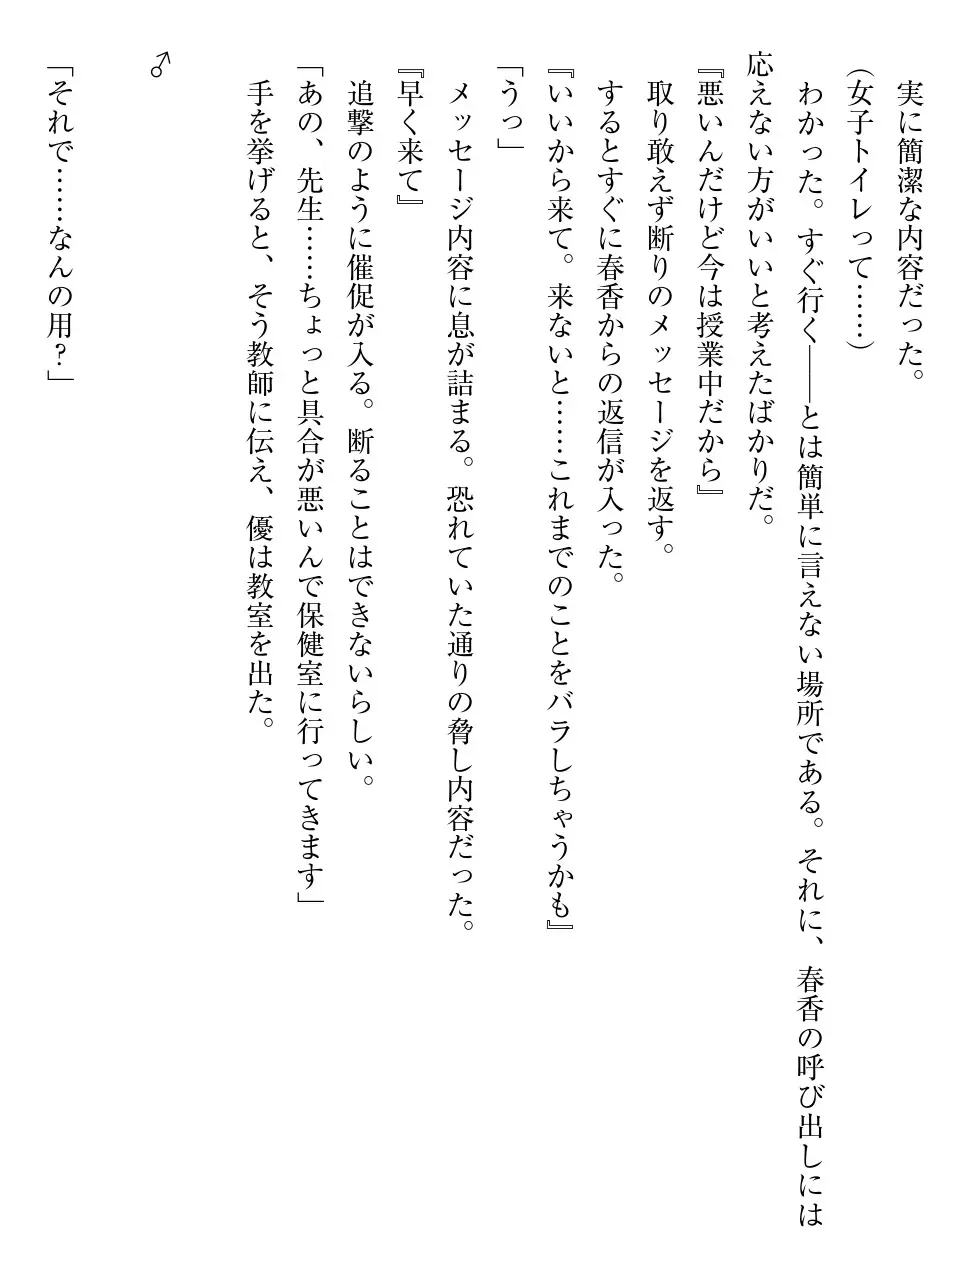 実に簡潔な内容だった。
（女子トイレって……）
わかった。すぐ行く――とは簡単に言えない場所である。それに、春香の呼び出しには
応えない方がいいと考えたばかりだ。
『悪いんだけど今は授業中だから』
取り敢えず断りのメッセージを返す。
するとすぐに春香からの返信が入った。
『いいから来て。来ないと……これまでのことをバラしちゃうかも』
「うっ」
メッセージ内容に息が詰まる。恐れていた通りの脅し内容だった。
『早く来て』
追撃のように催促が入る。断ることはできないらしい。
「あの、先生……ちょっと具合が悪いんで保健室に行ってきます」
手を挙げると、そう教師に伝え、優は教室を出た。
♂
「それで……なんの用？」